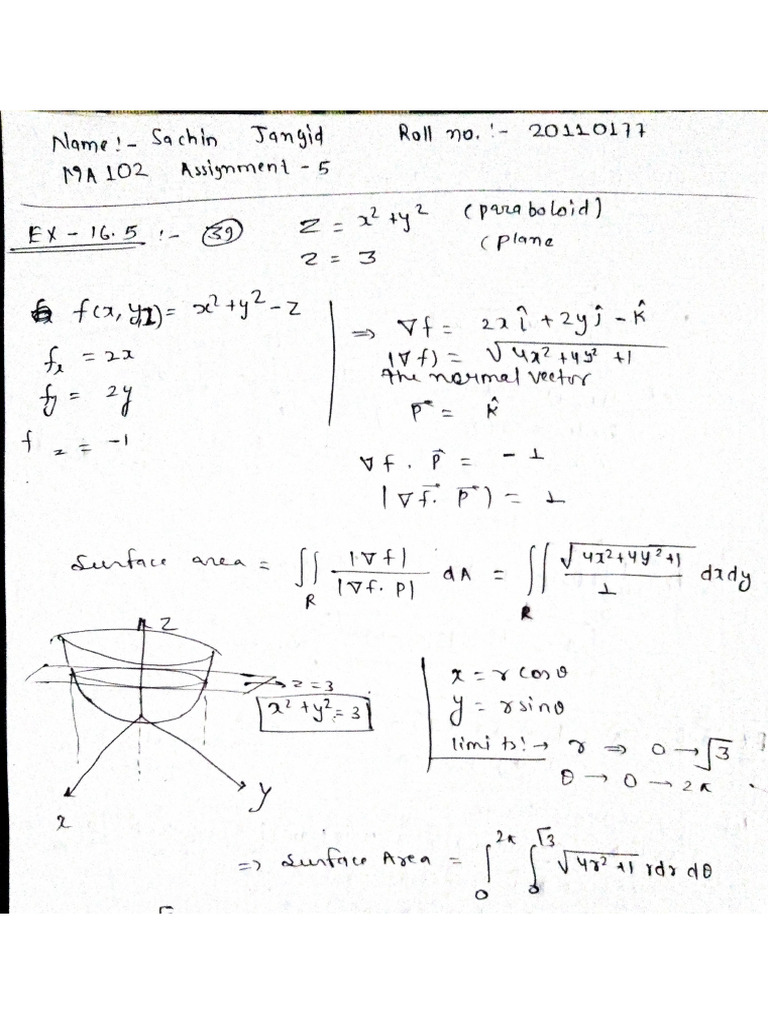 Name:- Sachin Jangid Roll no. :- 20110177
MA 102 Assignment - 5
EX - 16.5 :- (39) z = x² + y² (paraboloid)
z = 3 (plane
f(x, y, z) = x² + y² - z
fx = 2x
fy = 2y
fz = -1
⇒ ∇f = 2x î + 2y ĵ - k̂
|∇f) = √4x² + 4y² + 1
the normal vector
p⃗ = k̂
∇f . p⃗ = - 1
|∇f⃗ . p⃗) = 1
Surface area = ∬R |∇f| / |∇f. p| dA = ∬R √4x²+4y²+1 / 1 dxdy
z
z = 3
x² + y² = 3
x
y
x = r cosθ
y = r sinθ
limits! → r ⇒ 0 → √3
θ → 0 → 2π
⇒ Surface Area = ∫₀^2π ∫₀^√3 √4r² + 1 rdr dθ